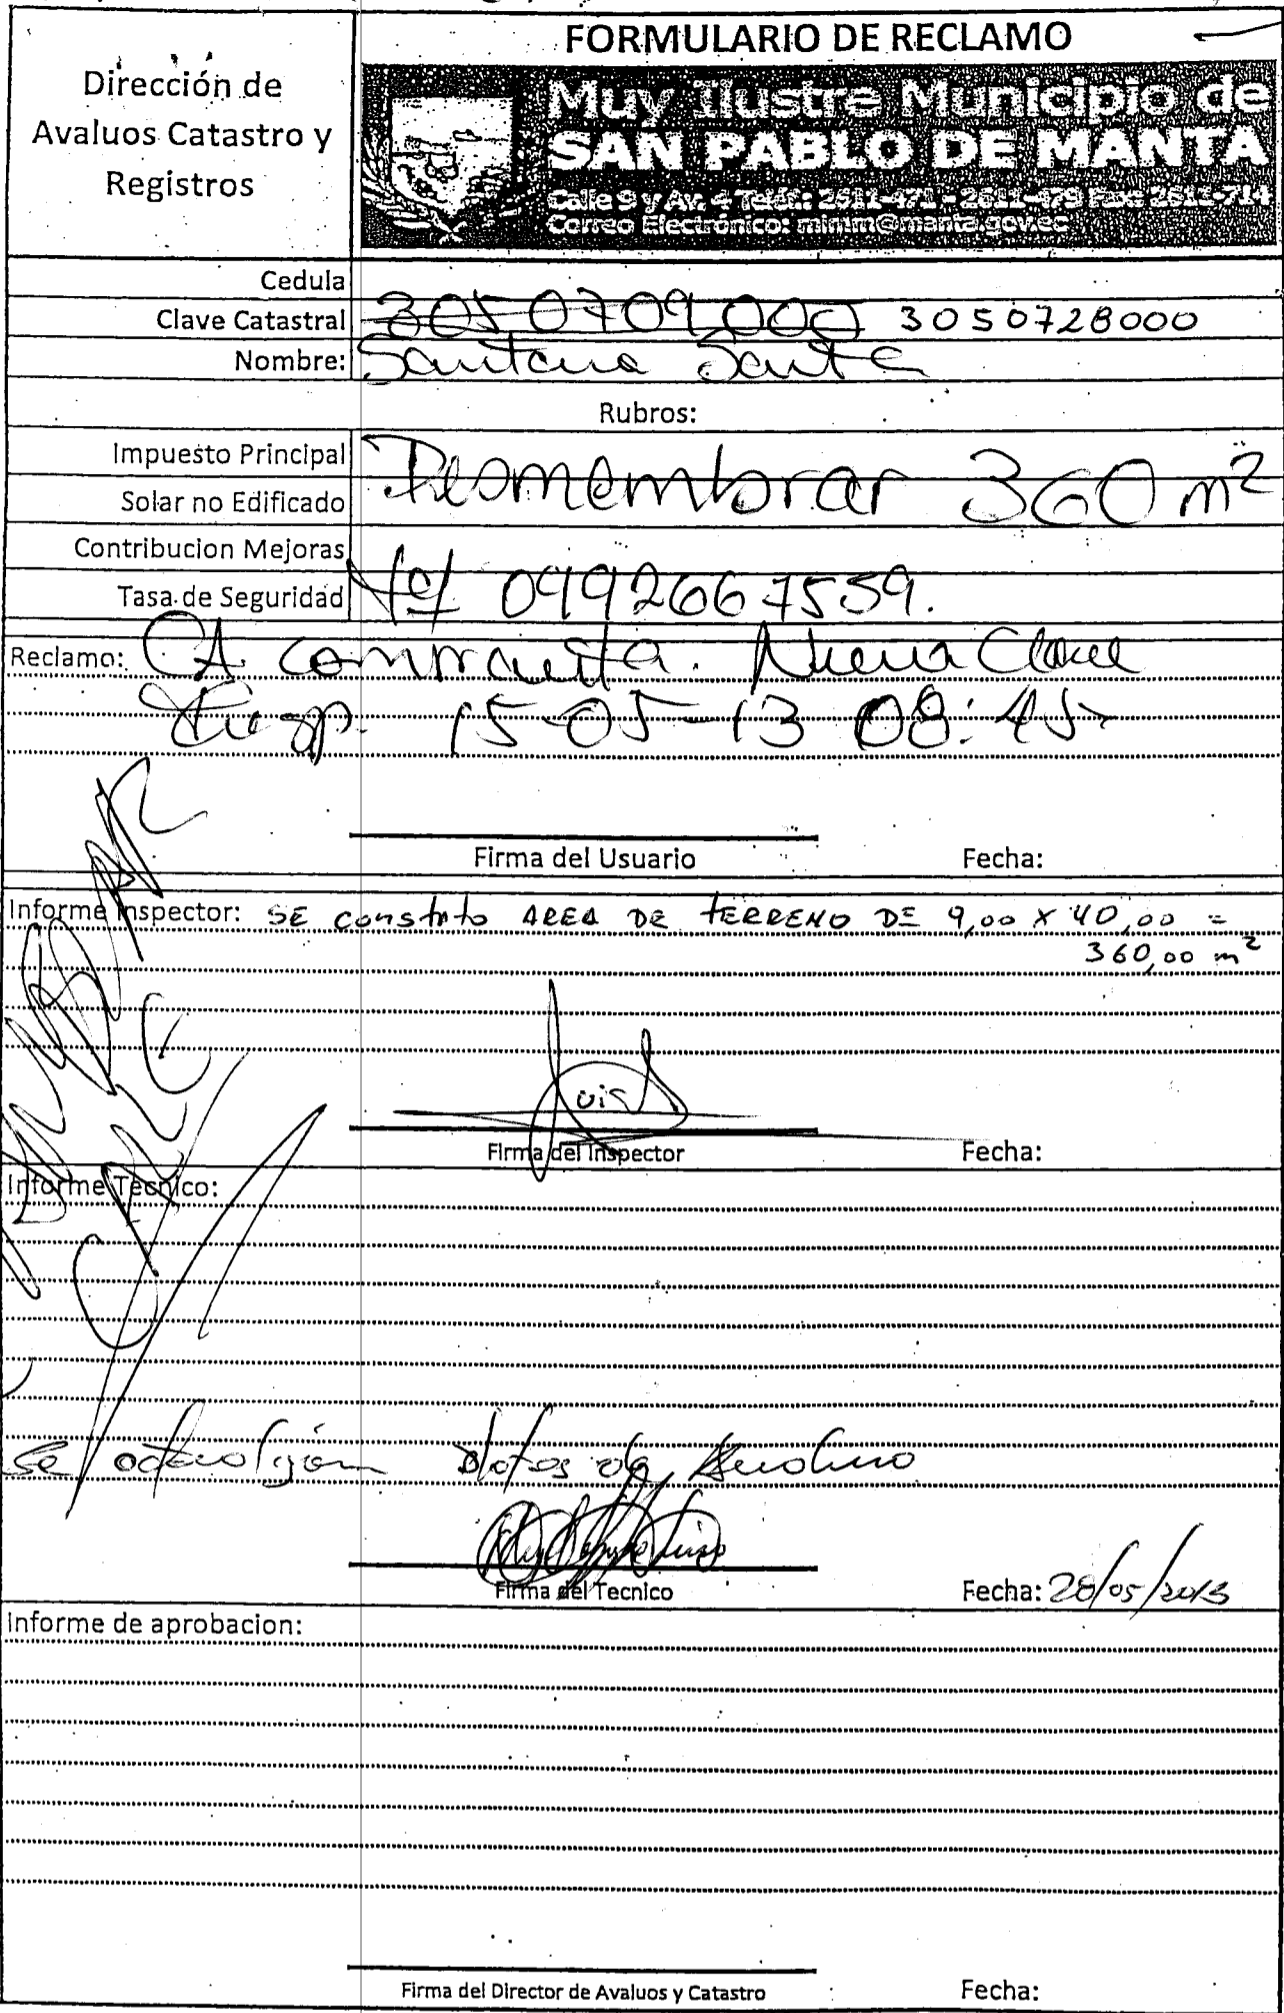 FORMULARIO DE RECLAMO
Dirección de
Avaluos Catastro y
Registros
Muy Ilustre Municipio de
SAN PABLO DE MANTA
Calle 9 y Av. 4 Telfs: 2611-471 - 2611-479 Fax: 2611-714
Correo Electrónico: mimm@manta.gov.ec
Cedula
Clave Catastral 3050709000 3050728000
Nombre: Santana Santa
Rubros:
Impuesto Principal
Desmembrar 360 m²
Solar no Edificado
Contribucion Mejoras
Tasa de Seguridad Tel 0992667559.
Reclamo: CA compraventa. Nueva Clave
Insp. 15-05-13 08:45
Firma del Usuario Fecha:
Informe Inspector: SE constato AREA DE TERRENO DE 9,00 X 40,00 =
360,00 m²
Luis
Firma del Inspector Fecha:
Informe Tecnico:
Se datos de
Firma del Tecnico Fecha: 28/05/2013
Informe de aprobacion:
Firma del Director de Avaluos y Catastro Fecha: